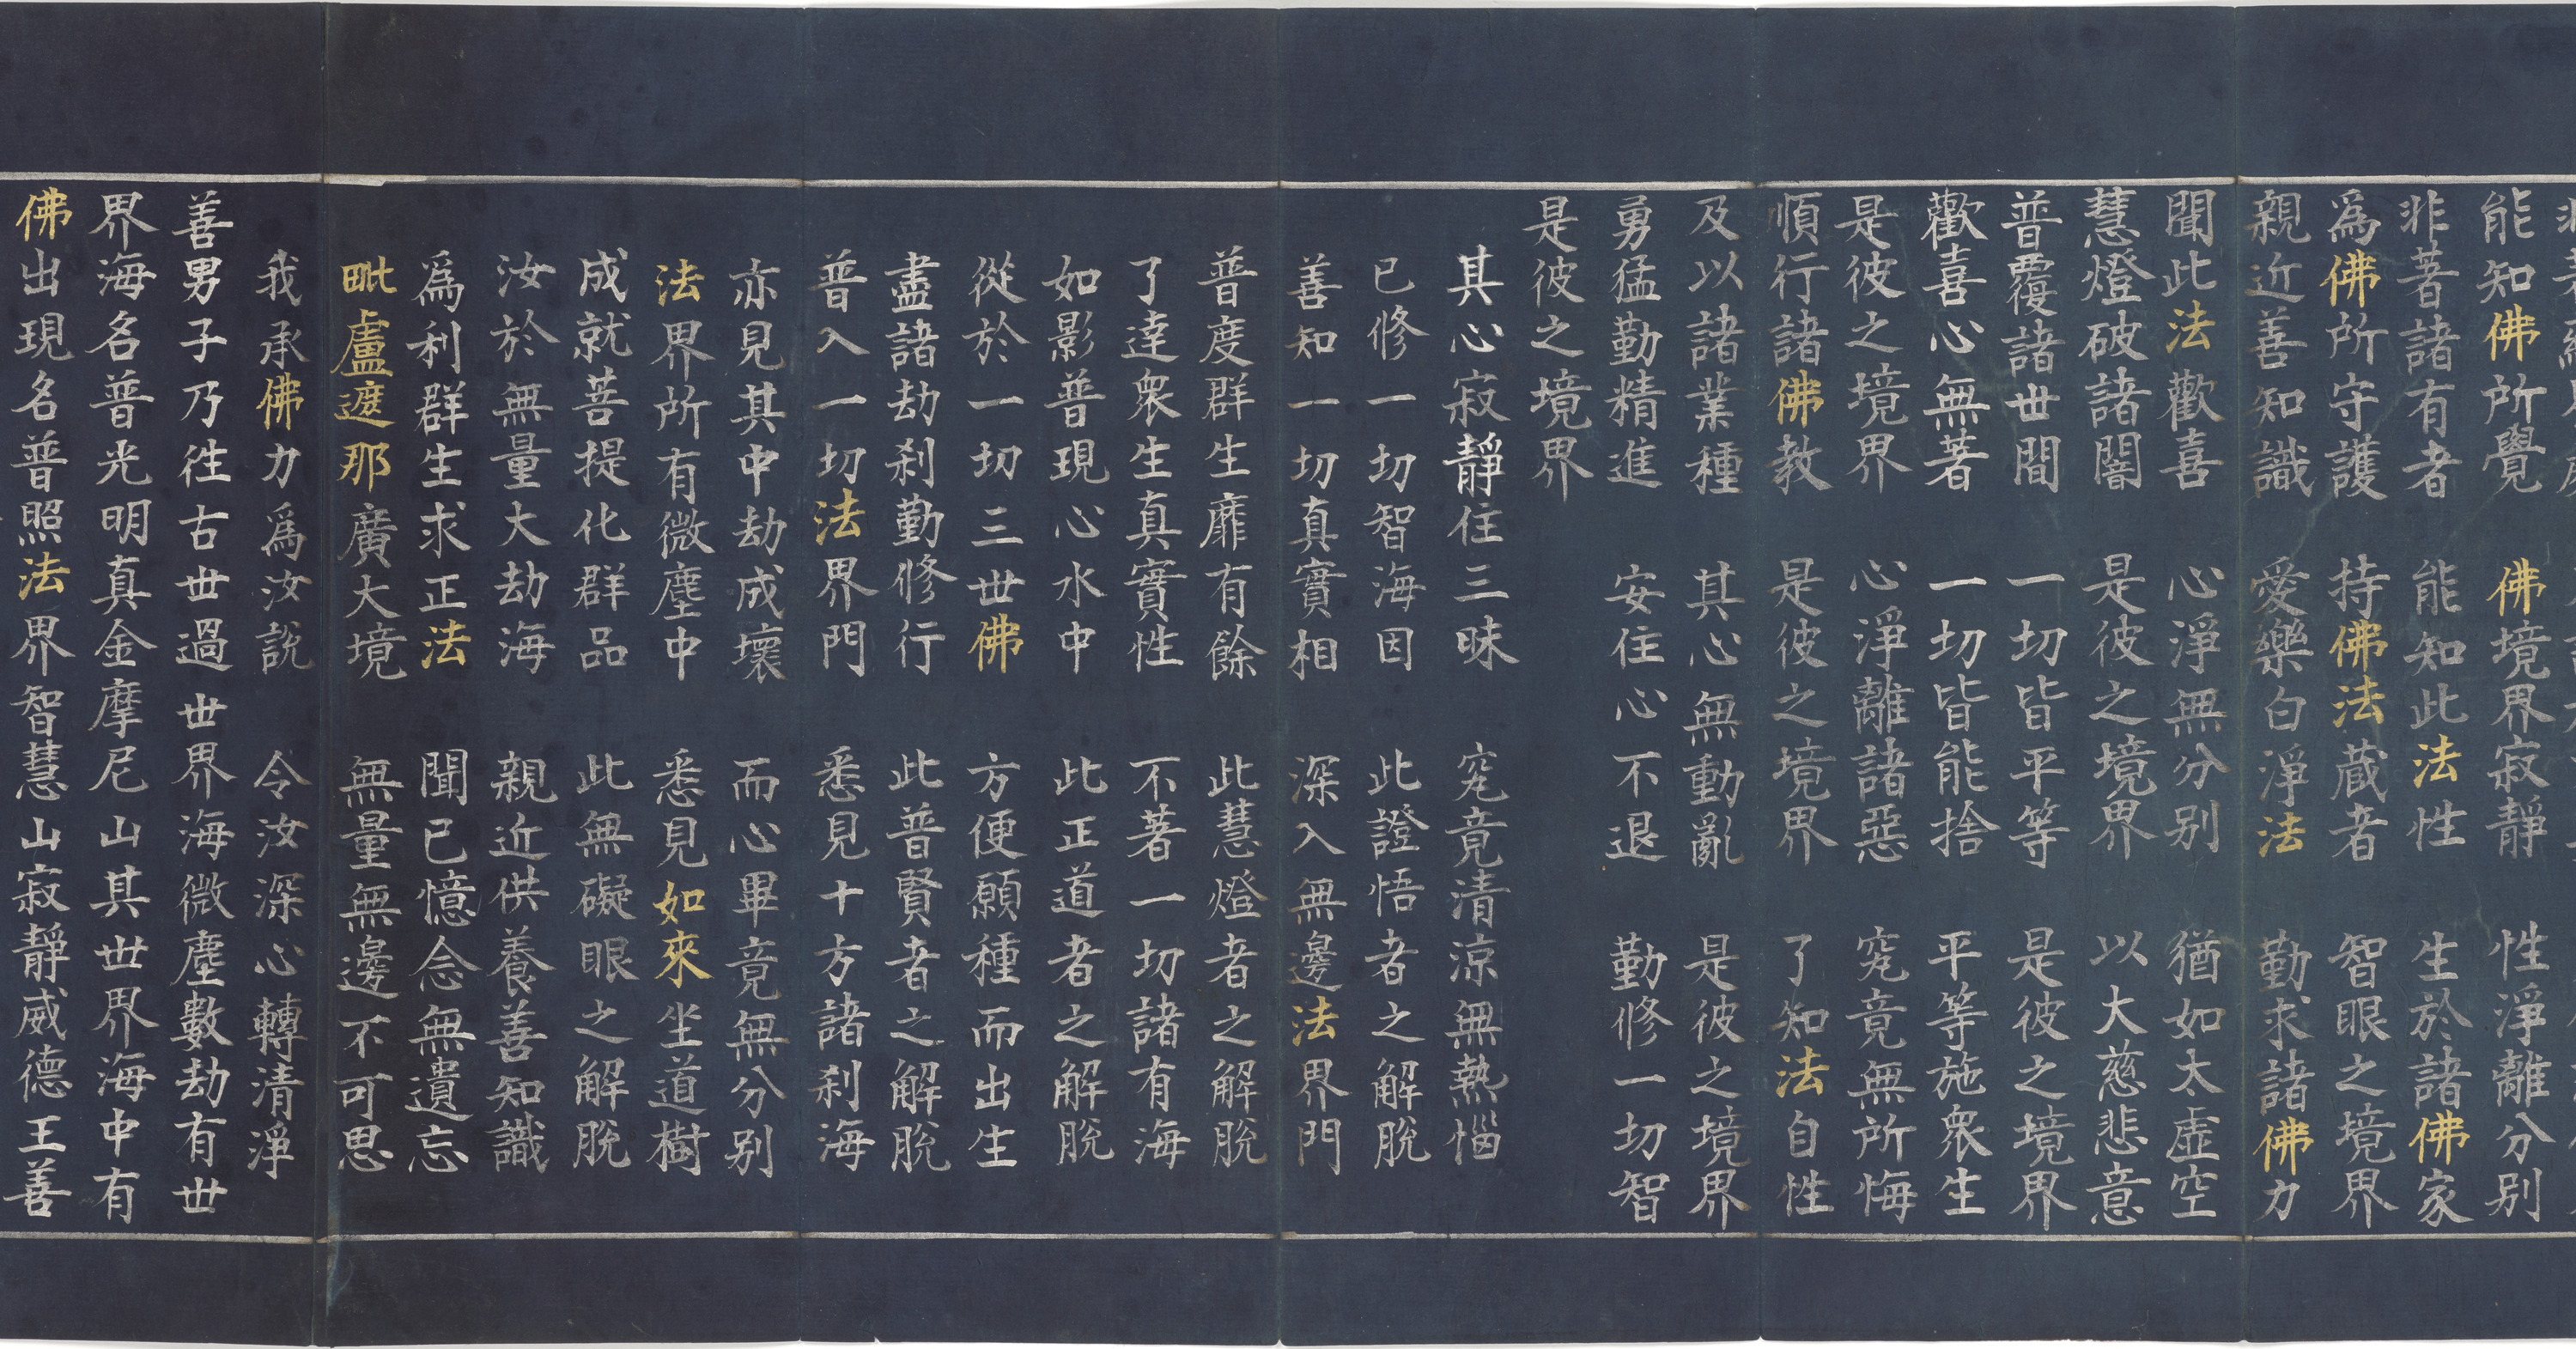 能知佛所覺 佛境界寂靜 性淨離分别
非著諸有者 能知此法性 生於諸佛家
爲佛所守護 持佛法蔵者 智眼之境界
親近善知識 愛樂白淨法 勤求諸佛力
聞此法歡喜 心淨無分别 猶如太虛空
慧燈破諸闇 是彼之境界 以大慈悲意
普覆諸世間 一切皆平等 是彼之境界
歡喜心無著 一切皆能捨 平等施衆生
是彼之境界 心淨離諸惡 究竟無所悔
順行諸佛教 是彼之境界 了知法自性
及以諸業種 其心無動亂 是彼之境界
勇猛勤精進 安住心不退 勤修一切智
是彼之境界
其心寂靜住三昧 究竟清涼無熱惱
已修一切智海因 此證悟者之解脫
善知一切真實相 深入無邊法界門
普度群生靡有餘 此慧燈者之解脫
了達衆生真實性 不著一切諸有海
如影普現心水中 此正道者之解脫
從於一切三世佛 方便願種而出生
盡諸劫刹勤修行 此普賢者之解脫
普入一切法界門 悉見十方諸刹海
亦見其中劫成壞 而心畢竟無分别
法界所有微塵中 悉見如來坐道樹
成就菩提化群品 此無礙眼之解脫
汝於無量大劫海 親近供養善知識
爲利群生求正法 聞已憶念無遺忘
毗盧遮那廣大境 無量無邊不可思
我承佛力爲汝說 令汝深心轉清淨
善男子乃徃古世過世界海微塵數劫有世
界海名普光明真金摩尼山其世界海中有
佛出現名普照法界智慧山寂靜威德王善